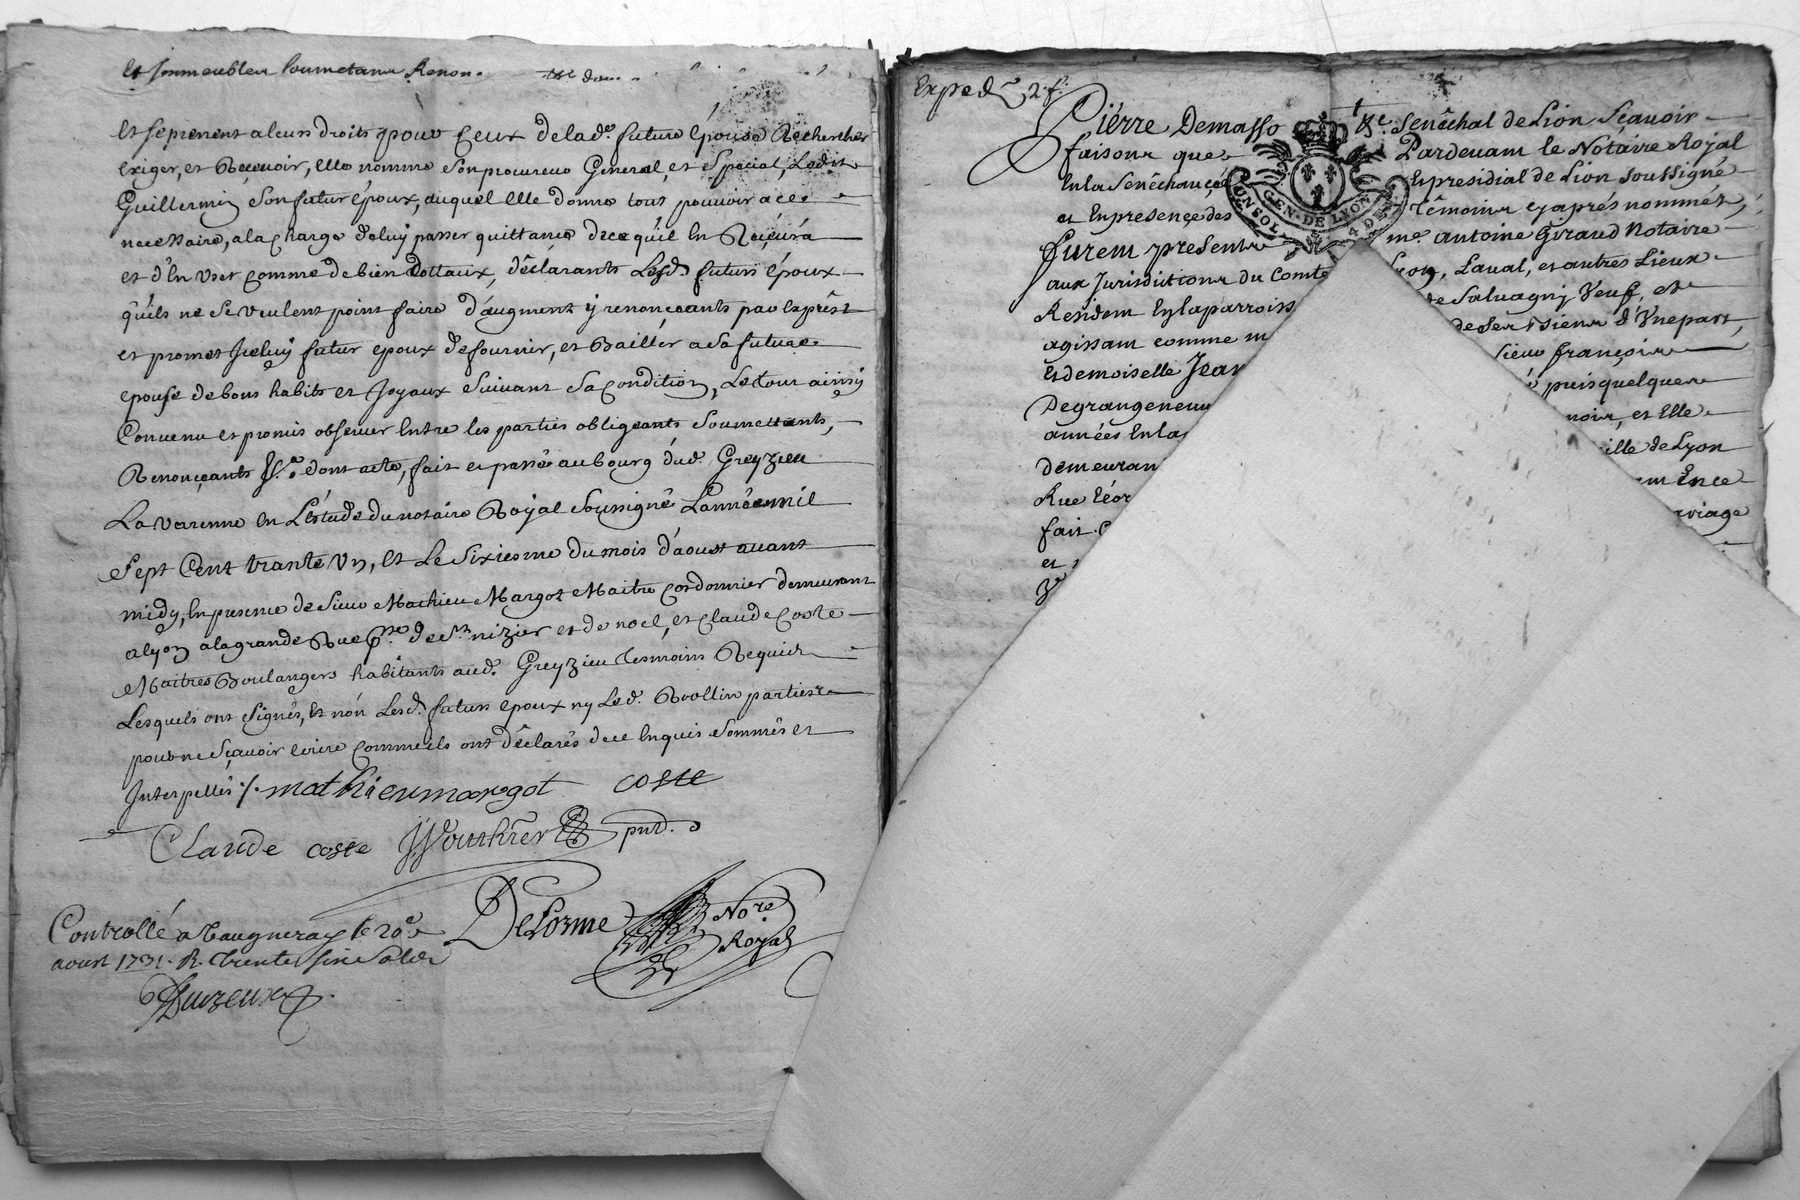 et immeubles soumetans Renon.
et seprenent a leurs droits pour ceux de lad.e future épouse Rechercher
exiger, et Recevoir, elle nomme son procureur General, et Special, Ledit
Guillermin son futur époux, auquel elle donne tout pouvoir a ce
necessaire, a la charge de luy passer quittance de ce qu'il en Recevra
et d'En User comme de bien dottaux, déclarants Lesd. futurs époux
qu'ils ne se veulent point faire d'augment y renonceants par exprêst
et promet Iceluy futur epoux de fournir, et Bailler a sa future
epouse de bons habits et Joyaux suivant sa condition, Le tout ainsy
Convenu et promis observer Entre les parties obligeants Soumettants,
Renonçants &.e dont acte, fait et passé au bourg dud. Greyzieu
La varenne en L'estude du notaire Royal Soussigné L'année mil
Sept Cent trante Un, et Le Sixiesme du mois d'aoust avant
midy, En presence de Sieur Mathieu Margot Maitre Cordonnier demeurant
a lyon a la grande Rue p.sse de St nizier et de noel, et Claude Coste
Maitres Boulangers habitants aud. Greyzieu tesmoins Requis
Lesquels ont Signés, et nón Lesd. futurs epoux ny Led. Roollin parties
pour ne Sçavoir ecrire comme ils ont déclarés de ce Enquis Sommés et
Interpellés ./. mathieu margot coste
Claude coste
Delorme Nore. Royal
Controllé a Vaugneray le 20e
aoust 1731. R. trente six sols
Exped 2 f.
Pierre Demasso &c. Senêchal de Lion Sçavoir
faisons que Pardevant le Notaire Royal
En la Senêchaucée Et presidial de Lion soussigné
et En presence des Têmoins cy aprés nommés,
furent presents me. antoine Giraud Notaire
aux Jurisdictions du Comté Lyon, Laval, et autres Lieux
Resident En la parroiss de Salvagny Veuf, et
agissant comme m de ser Sieur d'Une part,
Et demoiselle Jean Sieur françois
Degrangeneuve puis quelques
années En la noir, et Elle
demeuran ville de Lyon
Rue Ence
fait ariage
et
GEN. DE LYON